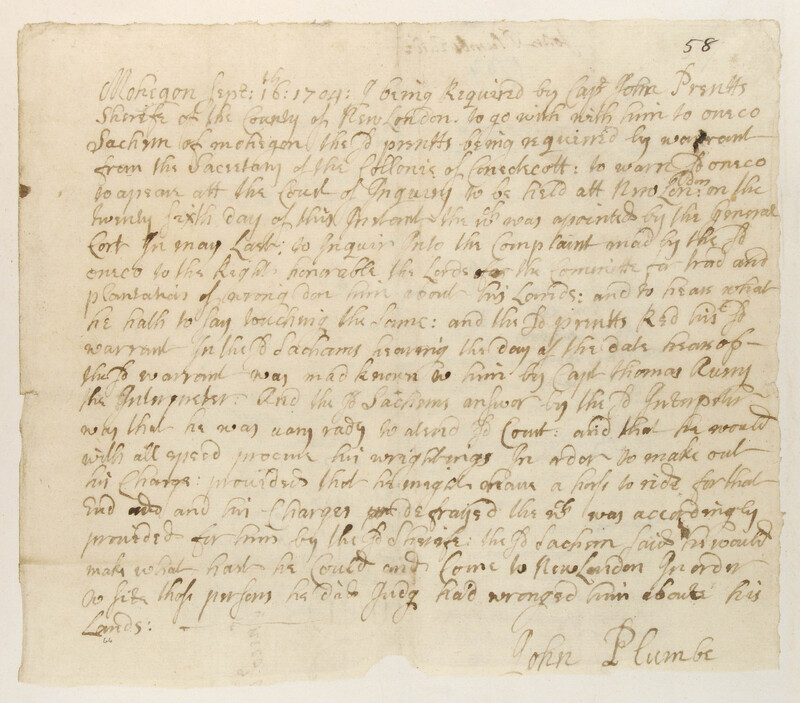 58
Mohegon Sept: th 16: 1704: I being Required by Capt John Prentts
Sherife of the County of New London. to go with with him to oneco
Sachem of mohegon the sd prentts being required by warrant
from the Sacretary of the Collonie of Conedecott: to warn sd oneco
to apeare att the Court of Inquiry to be held att New Londn: on the
twenty sixth day of this Instant the wh was apointed by the General
Cort In may Last: to Inquir Into the Complaint mad by the sd
oneco to the Right honorable the Lords the Committe for trad and
plantations of wrong don him about his Lands: and to hear what
he hath to say touching the same: and the sd prentts Red his sd
warrant In the sd Sachams hearing the day of the date hearof
the sd warrant was mad known to him by Capt Thomas
the Interpreter: And the sd Sachems answer by the sd Interpretr
was that he was vary rady to atend sd Court: and that he would
with all speed procure his wrightings In order to make out
his Charge: provided that he might have a hors to ride for that
End and his Charges defraiied the wh was accordingly
provided for him by the sd Sherife: the sd Sachem said he would
make what hast he Could and Come to New London In order
to site thos persons he did Judg had wronged him about his
Lands:
John Plumbe